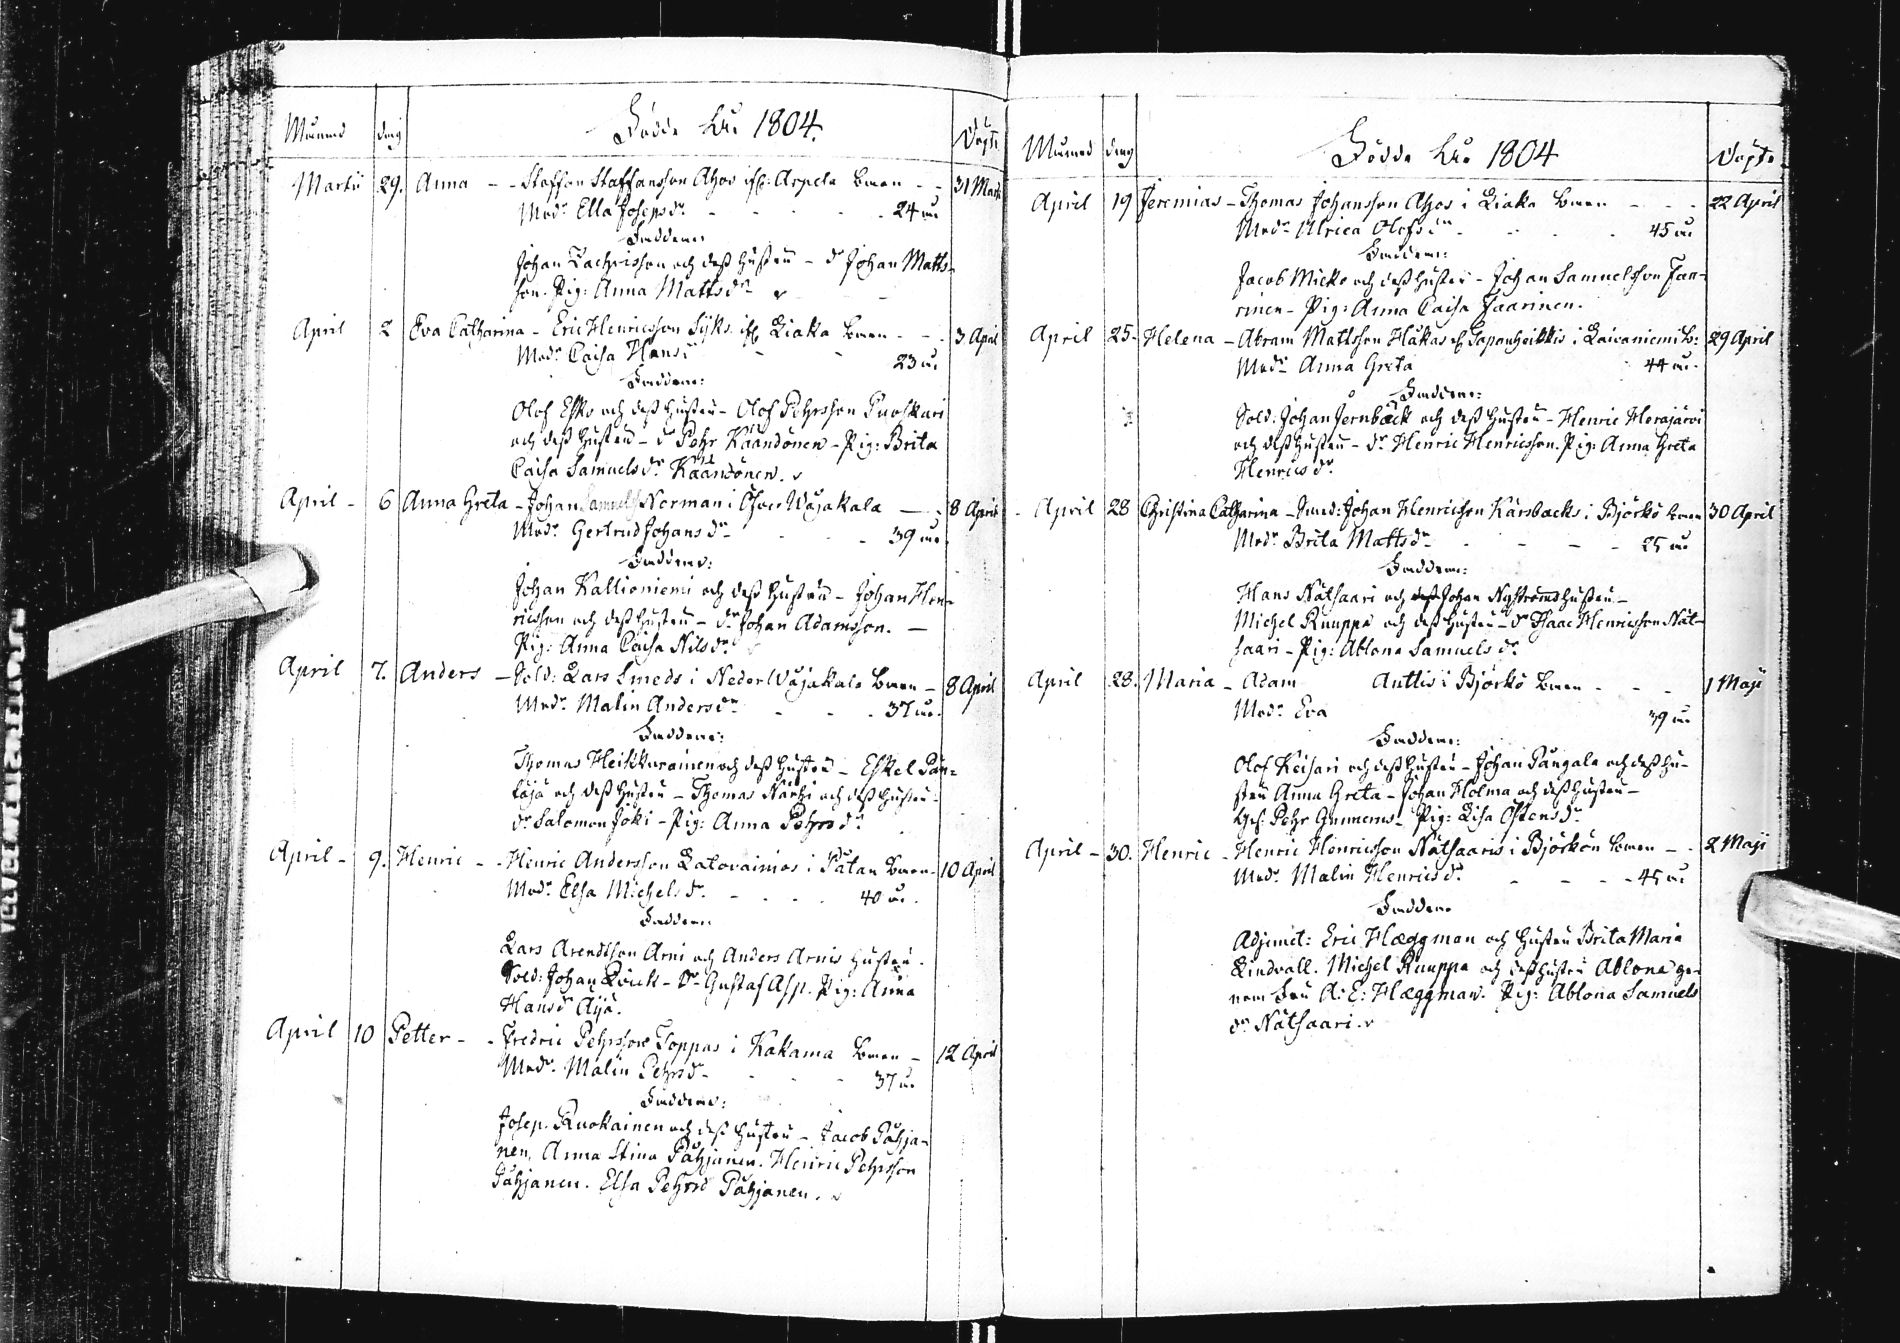 Månad dag Födde År 1804. Döpte
Martii 29. Anna - - Staffan Staffansson Ahos ifr: Arpela barn - - 31 Mart
Modr Ella Josepsdr - - - - - 24 år
Faddrar:
Johan Zachrisson och dess hustru - dr Johan Matts-
son. Pig: Anna Mattsdr
April 2 Eva Catharina - Eric Henricsson Syks ifr Liaka barn - - 3 April
Modr Caisa Hansdr - - 23 år
Faddrar:
Olof Esko och dess hustru - Olof Pehrsson Puoskari
och dess hustru - dr Pehr Käändönen - Pig: Brita
Caisa Samuelsdr Käändönen.
April - 6 Anna Greta - Johan Samuels Norman i Öfver Wåjakala - 8 April
Modr Gertrud Johansdr - - - 39 år
Faddrar:
Johan Kallioniemi och dess hustru - Johan Hen-
ricsson och dess hustru - dr Johan Adamsson. -
Pig: Anna Caisa Nilsdr
April 7. Anders - Sold: Lars Smeds i Neder Wåjakala barn - 8 April
Modr Malin Andersdr - - - 37 år.
Faddrar:
Thomas Heikkurainen och dess hustru - Eskel
och dess hustru - Thomas Närhi och dess hustru -
dr Salomon Joki - Pig: Anna Pehrsdr
April - 9. Henric - - Henric Andersson Latovainios i Påtan barn - 10 April
Modr Elsa Michelsdr - - - - 40 år.
Faddrar:
Lars Arendtson Arni och Anders Arnis hustru.
Sold: Johan Qvick - dr Gustaf Asp. Pig: Anna
Hansdr Äijä.
April 10 Petter - - Fredric Pehrsson Toppas i Kakama barn - 12 April
Modr Malin Pehrsdr - - - 37 år
Faddrar:
Josep. Ruokainen och dess hustru - Jacob Påhja-
nen, Anna Stina Påhjanen. Henric Pehrsson
Påhjanen. Elsa Pehrsd Påhjanen.
Månad dag Födde År 1804 Döpte
April 19 Jeremias - Thomas Johansson Ahos i Liaka barn - - - 22 April
Modr Ulrica Olofsdr - - - 45 år
Faddrar:
Jacob Micko och dess hustru - Johan Samuelsson Jaa-
rinen - Pig: Anna Caisa Jaarinen.
April 25. Helena - Abram Mattsson Hukas i Laivaniemi b: 29 April
Modr Anna Greta 44 år.
Faddrar:
Sold: Johan Jernbäck och dess hustru - Henric Herajärvi
och dess hustru - dr Henric Henricsson. Pig: Anna Greta
Henricsdr
April 28 Christina Catharina - Inneb: Johan Henricsson Kårsbacks i Björkö barn 30 April
Modr Brita Mattsdr - - - - 25 år
Faddrar:
Hans Nätsaari och dess Johan Nyströms hustru -
Michel Ruuppa och dess hustru - dr Isaac Henricsson Nät-
saari - Pig: Ablona Samuelsdr
April 28. Maria - Adam Anttis i Björkö barn - - - 1 Maji
Modr Eva 39 år
Faddrar:
Olof Keisari och dess hustru - Johan Pangala och dess hu-
stru Anna Greta - Johan Holma och dess hustru -
Pehr Gunnerus - Pig: Lisa Östensdr
April - 30. Henric - Henric Henricsson Nätsaaris i Björkön barn - - 2 Maji
Modr Malin Henricsdr - - - - 45 år
Faddrar
Adjunct: Eric Hæggman och hustru Brita Maria
Lindvall. Michel Ruuppa och dess hustru Ablona ge-
nom Fru A: E: Hæggman. Pig: Ablona Samuels
dr Nätsaari.